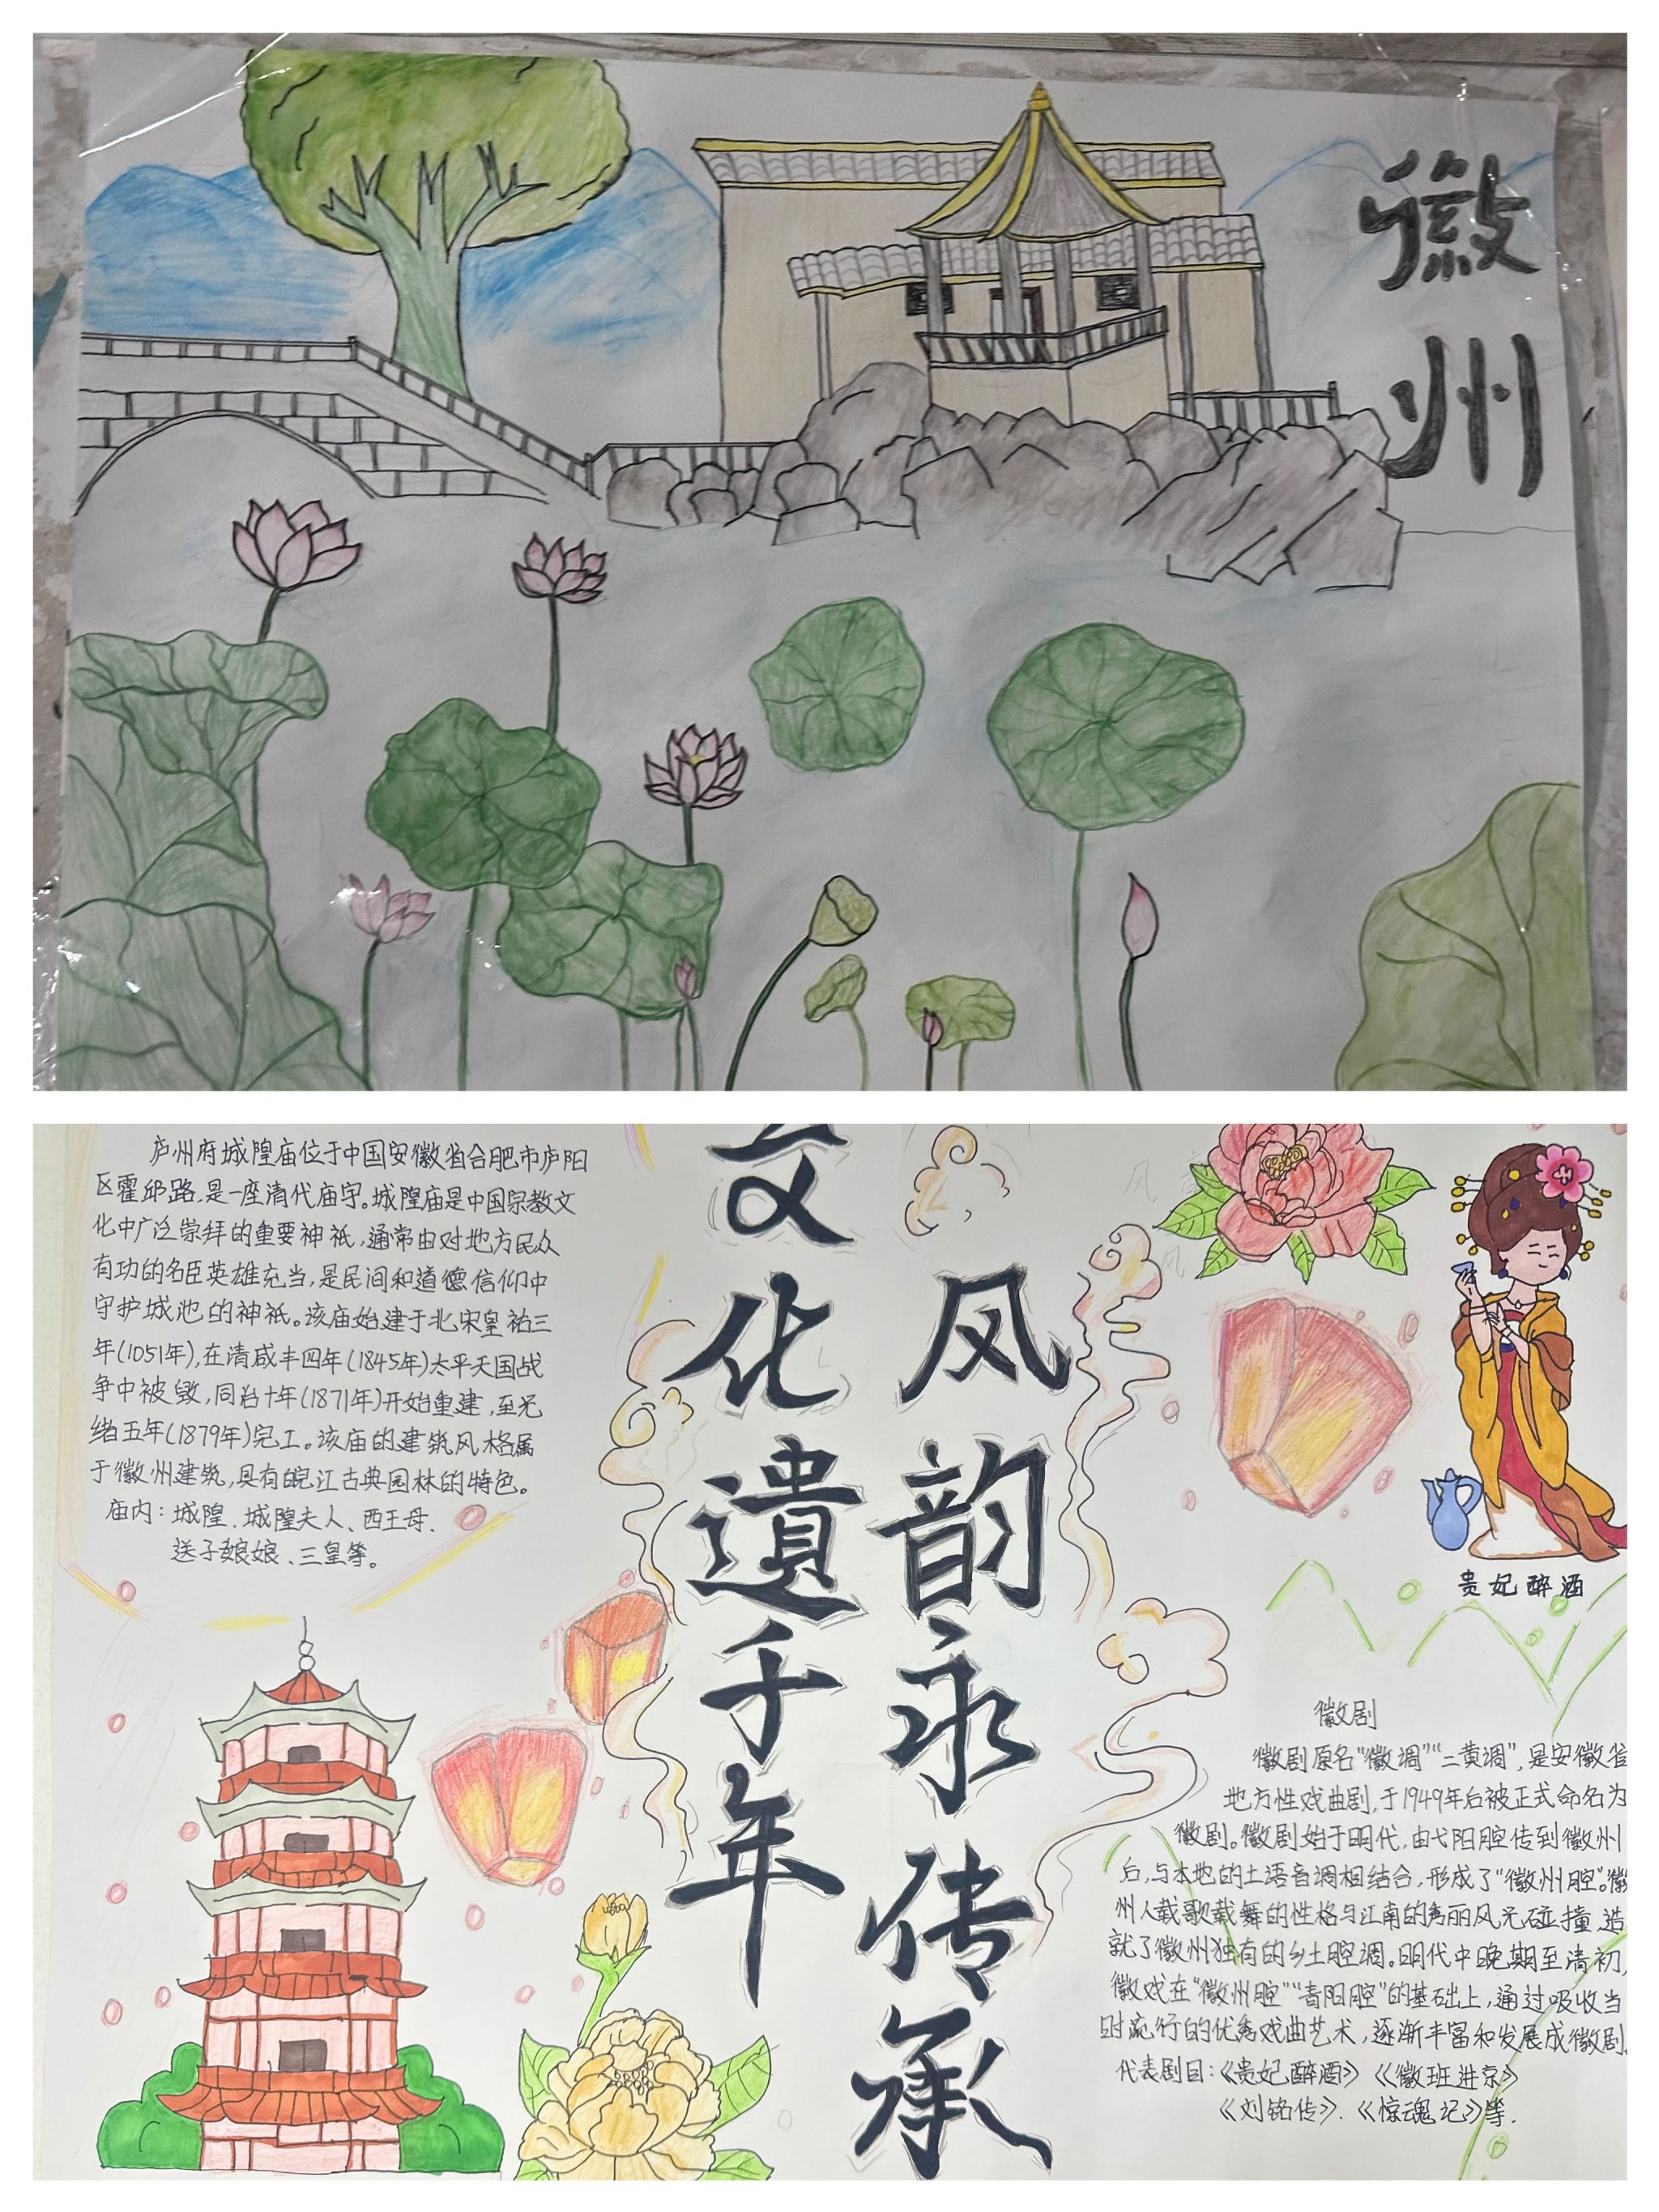 徽州
庐州府城隍庙位于中国安徽省合肥市庐阳
区霍邱路,是一座清代庙宇。城隍庙是中国宗教文
化中广泛崇拜的重要神祇,通常由对地方民众
有功的名臣英雄充当,是民间和道德信仰中
守护城池的神祇。该庙始建于北宋皇祐三
年(1051年),在清咸丰四年(1845年)太平天国战
争中被毁,同治十年(1871年)开始重建,至光
绪五年(1879年)完工。该庙的建筑风格属
于徽州建筑,具有皖江古典园林的特色。
庙内:城隍、城隍夫人、西王母、
送子娘娘、三皇等。
文化遗千年
风韵永传承
贵妃醉酒
徽剧
徽剧原名“徽调”“二黄调”,是安徽省
地方性戏曲剧,于1949年后被正式命名为
徽剧。徽剧始于明代,由弋阳腔传到徽州
后,与本地的土语音调相结合,形成了“徽州腔”。徽
州人载歌载舞的性格与江南的秀丽风光碰撞,造
就了徽州独有的乡土腔调。明代中晚期至清初,
徽戏在“徽州腔”“青阳腔”的基础上,通过吸收当
时流行的优秀戏曲艺术,逐渐丰富和发展成徽剧。
代表剧目:《贵妃醉酒》《徽班进京》
《刘铭传》、《惊魂记》等.